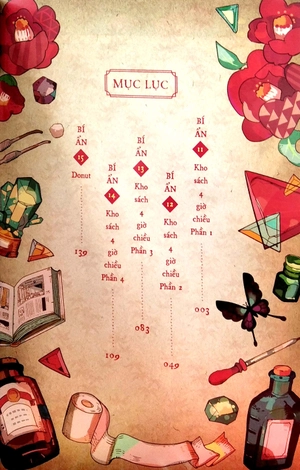 MỤC LỤC
BÍ
ẨN
11
Kho
sách
4
giờ
chiều
Phần 1
003
BÍ
ẨN
12
Kho
sách
4
giờ
chiều
Phần 2
049
BÍ
ẨN
13
Kho
sách
4
giờ
chiều
Phần 3
083
BÍ
ẨN
14
Kho
sách
4
giờ
chiều
Phần 4
109
BÍ
ẨN
15
Donut
139